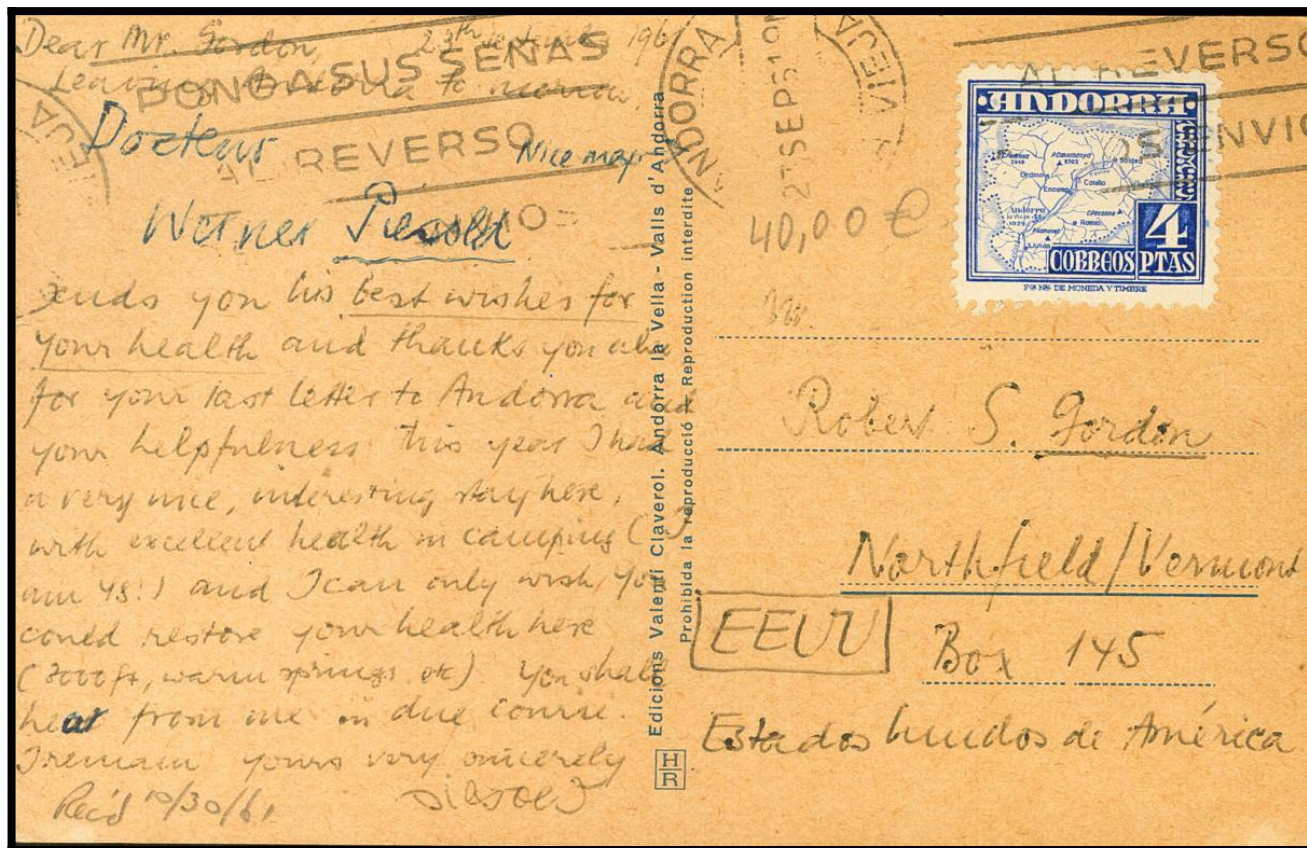 Dear Mr. Gordon, 196
Leaving Andorra to morrow.
PONGA SUS SEÑAS
AL REVERSO
Docteur
Nice map
Werner
sends you his best wishes for
your health and thanks you also
for your last letter to Andorra and
your helpfulness. This year I had
a very nice, interesting stay here,
with excellent health in camping (I
am 48!) and I can only wish, you
could restore your health here
(3000 ft, warm springs etc) You shall
hear from me in due course.
I remain yours very sincerely
Rec'd 10/30/61
Edicions Valentí Claverol. Andorra la Vella - Valls d'Andorra
Prohibida la reproducció - Reproduction interdite
HR
ANDORRA
VIEJA
AL REVERSO
ENVIO
40,00 €
ANDORRA
CORREOS
4
PTAS
Robert S. Gordon
Northfield/Vermont
EEUU
Box 145
Estados Unidos de América